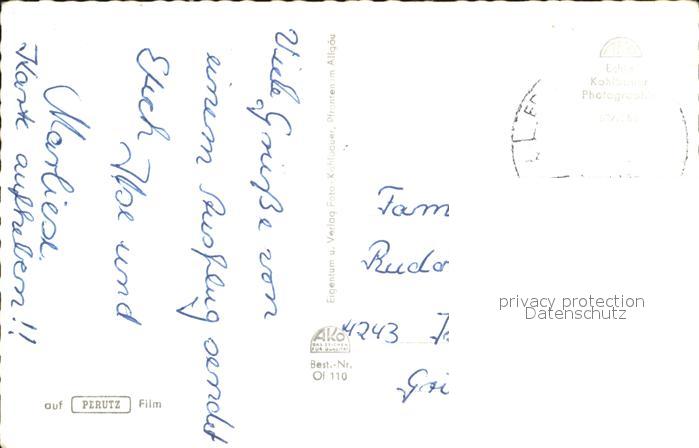 Viele Grüße von
einem Ausflug sendet
Euch Ilse und
Marliese.
Karte aufheben!!
Eigentum u. Verlag Foto-Kohlbauer, Pfronten im Allgäu
AKO
DAS ZEICHEN
FÜR QUALITÄT
Best.-Nr.
Of 110
auf PERUTZ Film
AKO
Echte
Kohlbauer
Photographie
Fam
Rudo
4243
privacy protection
Datenschutz